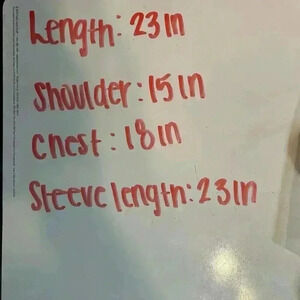 Length: 23in
Shoulder: 15in
chest: 18in
Sleeve length: 23in